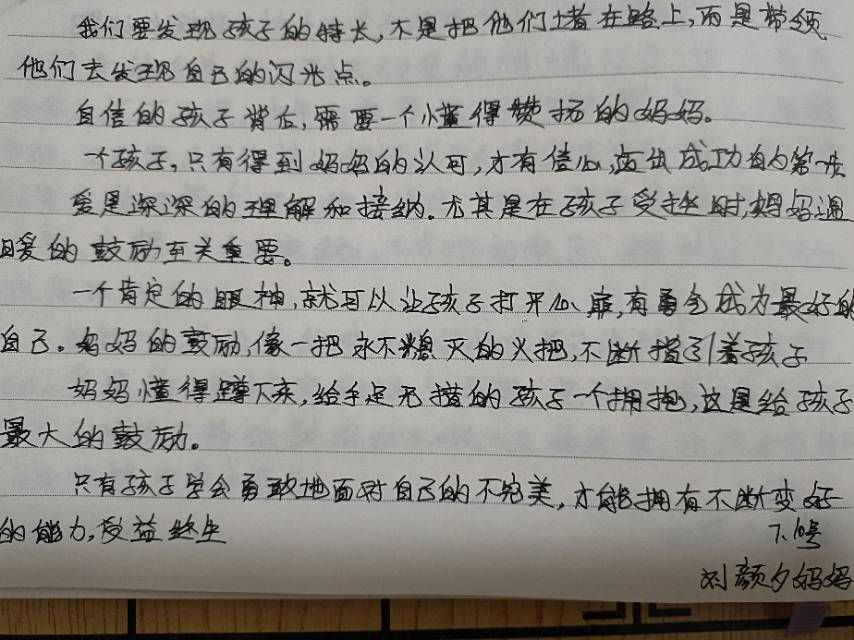 我们要发现孩子的特长,不是把他们堵在路上,而是带领
他们去发现自己的闪光点。
自信的孩子背后,需要一个懂得赞扬的妈妈。
一个孩子,只有得到妈妈的认可,才有信心,迈出成功的第一步
爱是深深的理解和接纳.尤其是在孩子受挫时,妈妈温
暖的鼓励至关重要。
一个肯定的眼神,就可以让孩子打开心扉,有勇气成为最好的
自己.妈妈的鼓励,像一把永不熄灭的火把,不断指引着孩子
妈妈懂得蹲下来,给手足无措的孩子一个拥抱,这是给孩子
最大的鼓励。
只有孩子学会勇敢地面对自己的不完美,才能拥有不断变好
的能力,受益终生
7.10号
刘颜夕妈妈